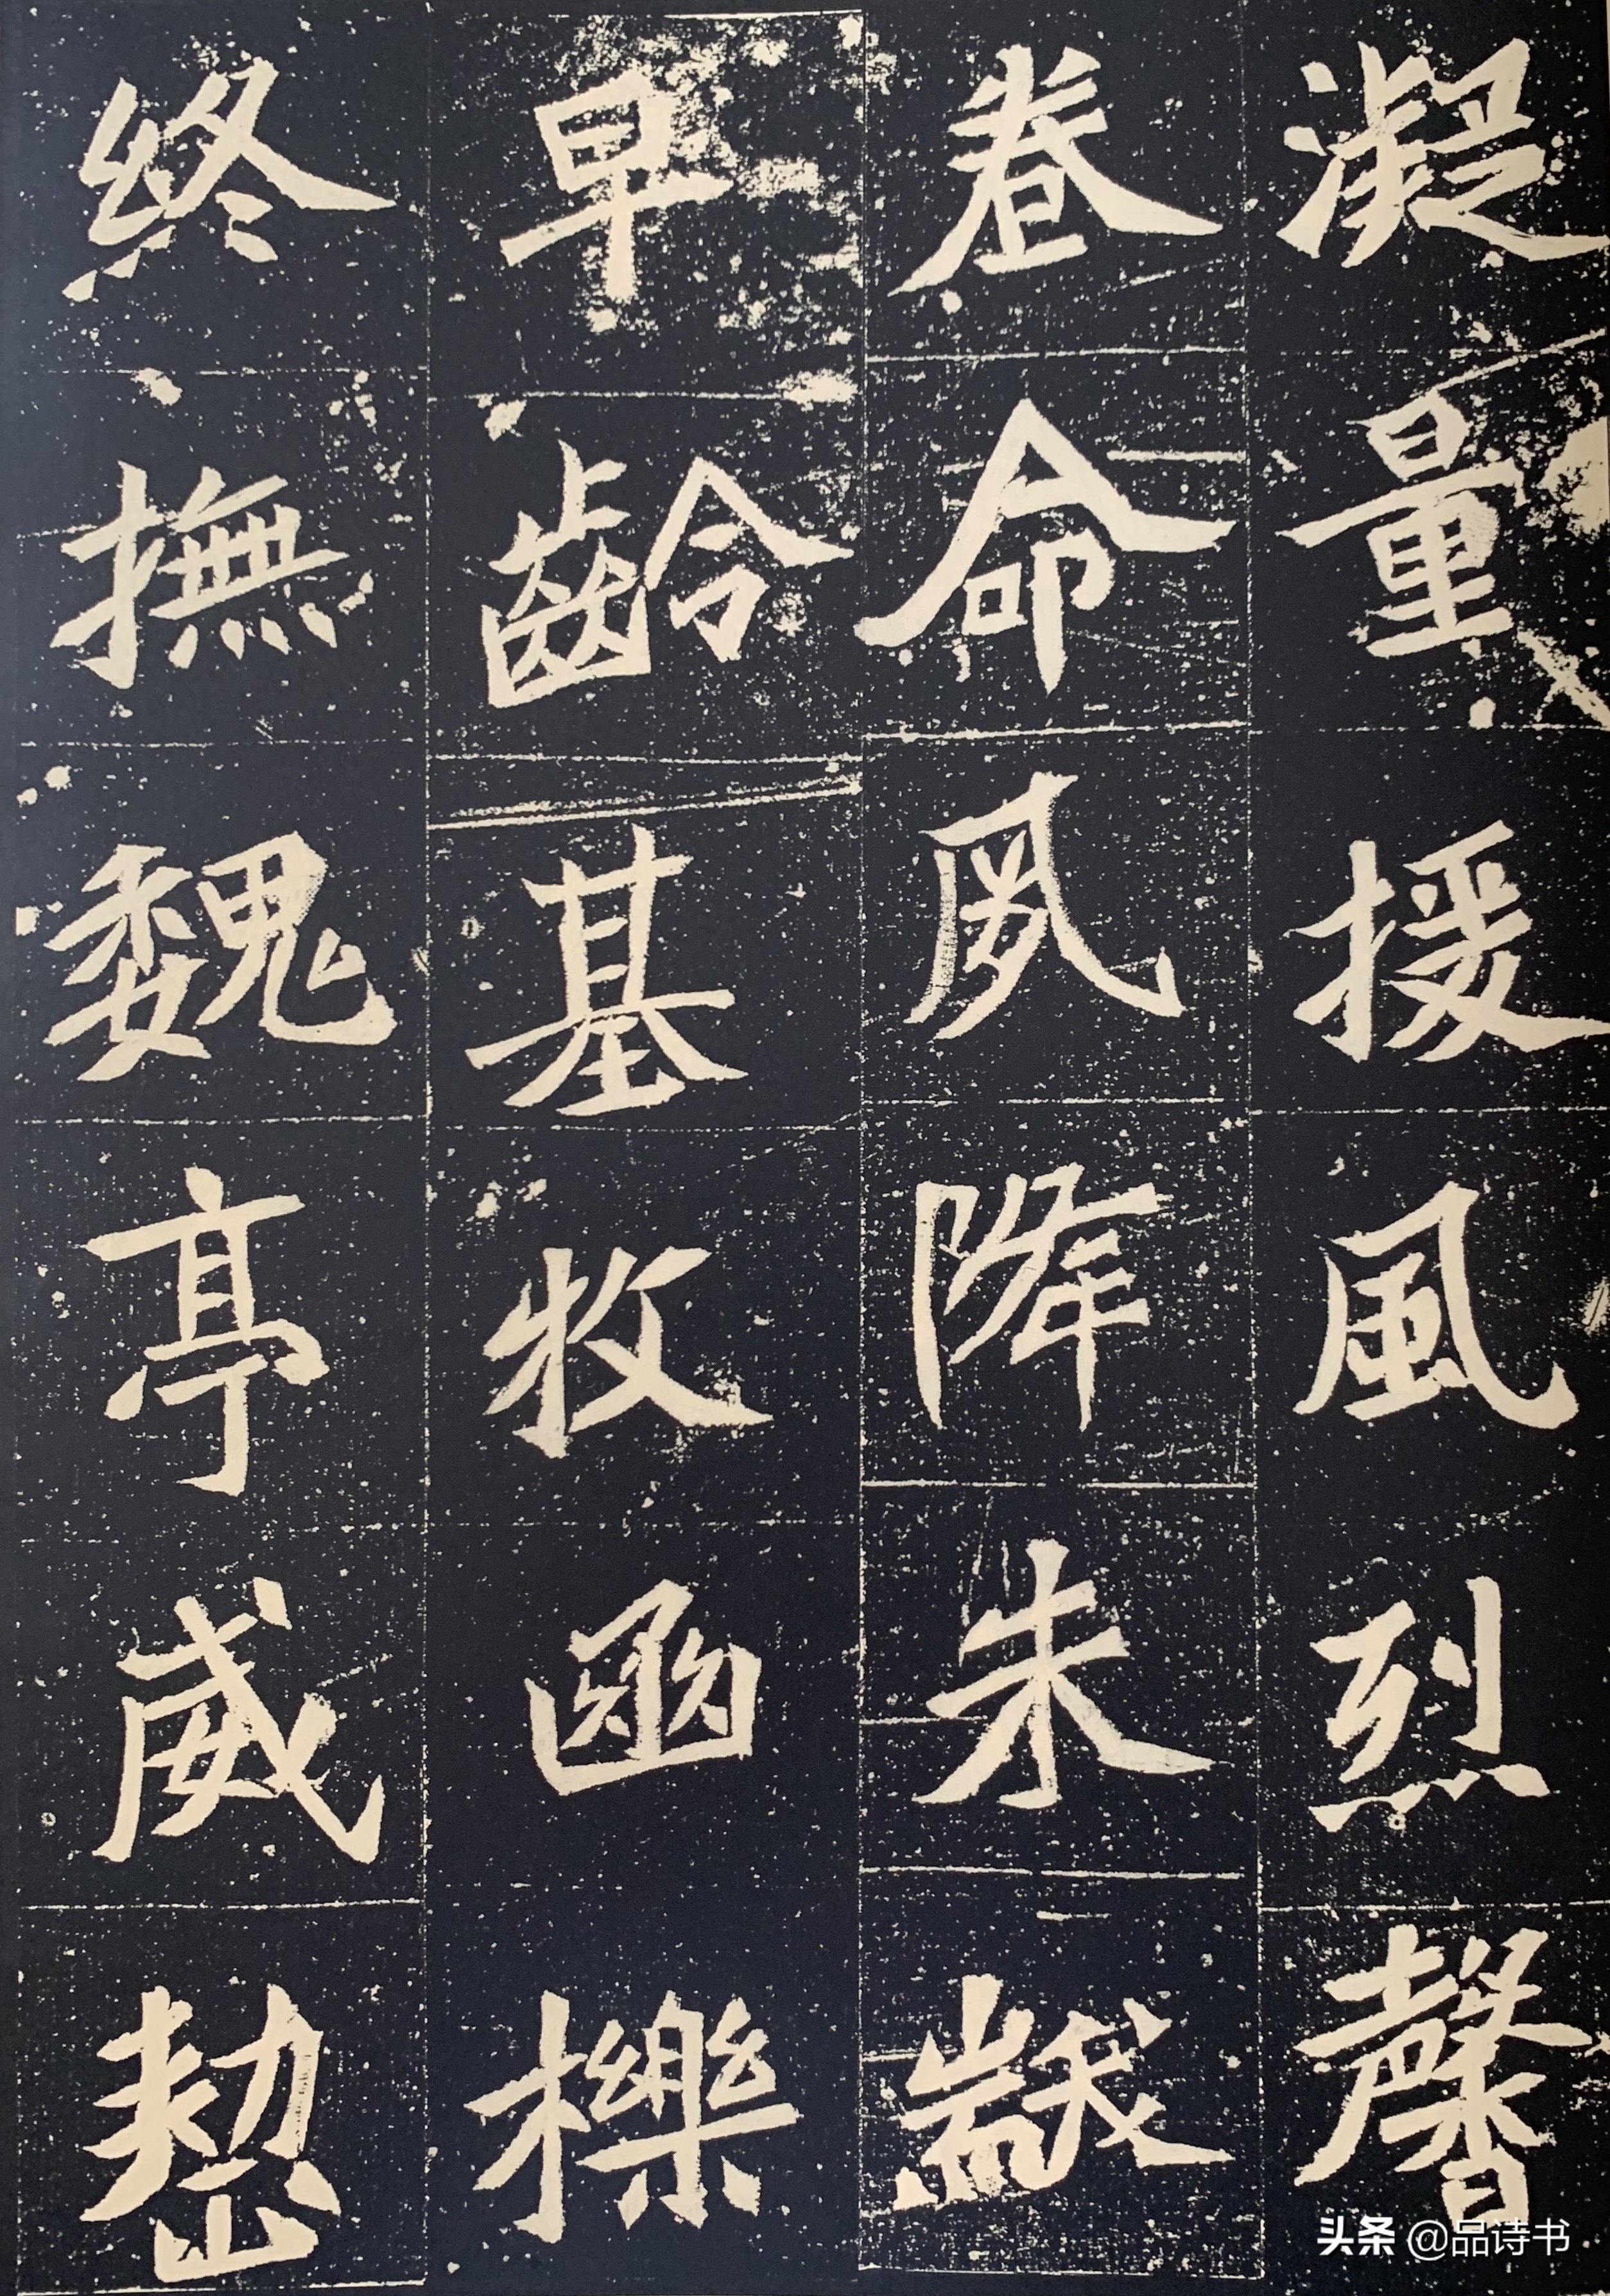 凝量援風烈馨
眷命夙降朱黻
早齡基牧函櫟
終撫魏亭威整
头条 @品诗书